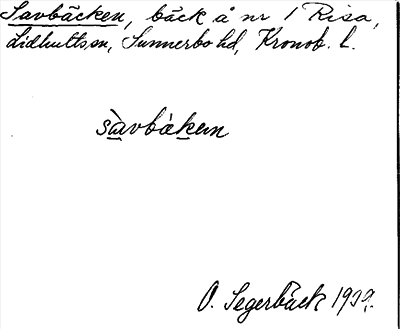 Savbäcken, bäck å nr 1 Risa,
Lidhults sn, Sunnerbo hd, Kronob. l.
sàvbäken
O. Segerbäck 1939.